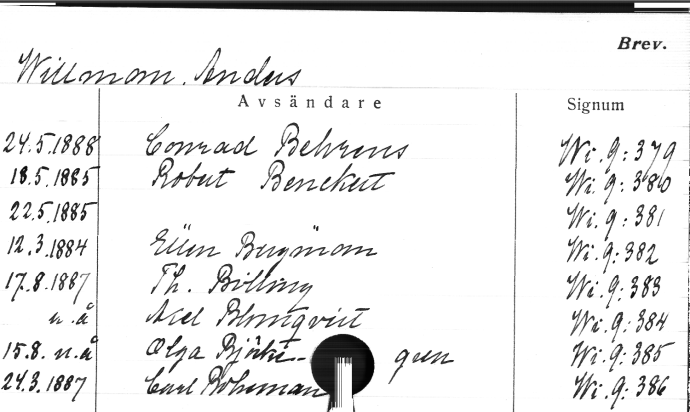 Brev.
Willman. Anders
Avsändare Signum
24.5.1888 Conrad Behrens Wi.9:379
18.5.1885 Robert Benckert Wi.9:380
22.5.1885 Wi.9:381
12.3.1884 Ellen Bergman Wi.9:382
17.8.1887 Th. Billing Wi.9:383
u.å Axel Blomqvist Wi.9:384
15.8. u.å Olga Björke gren Wi.9:385
24.3.1887 Carl Boheman Wi.9:386